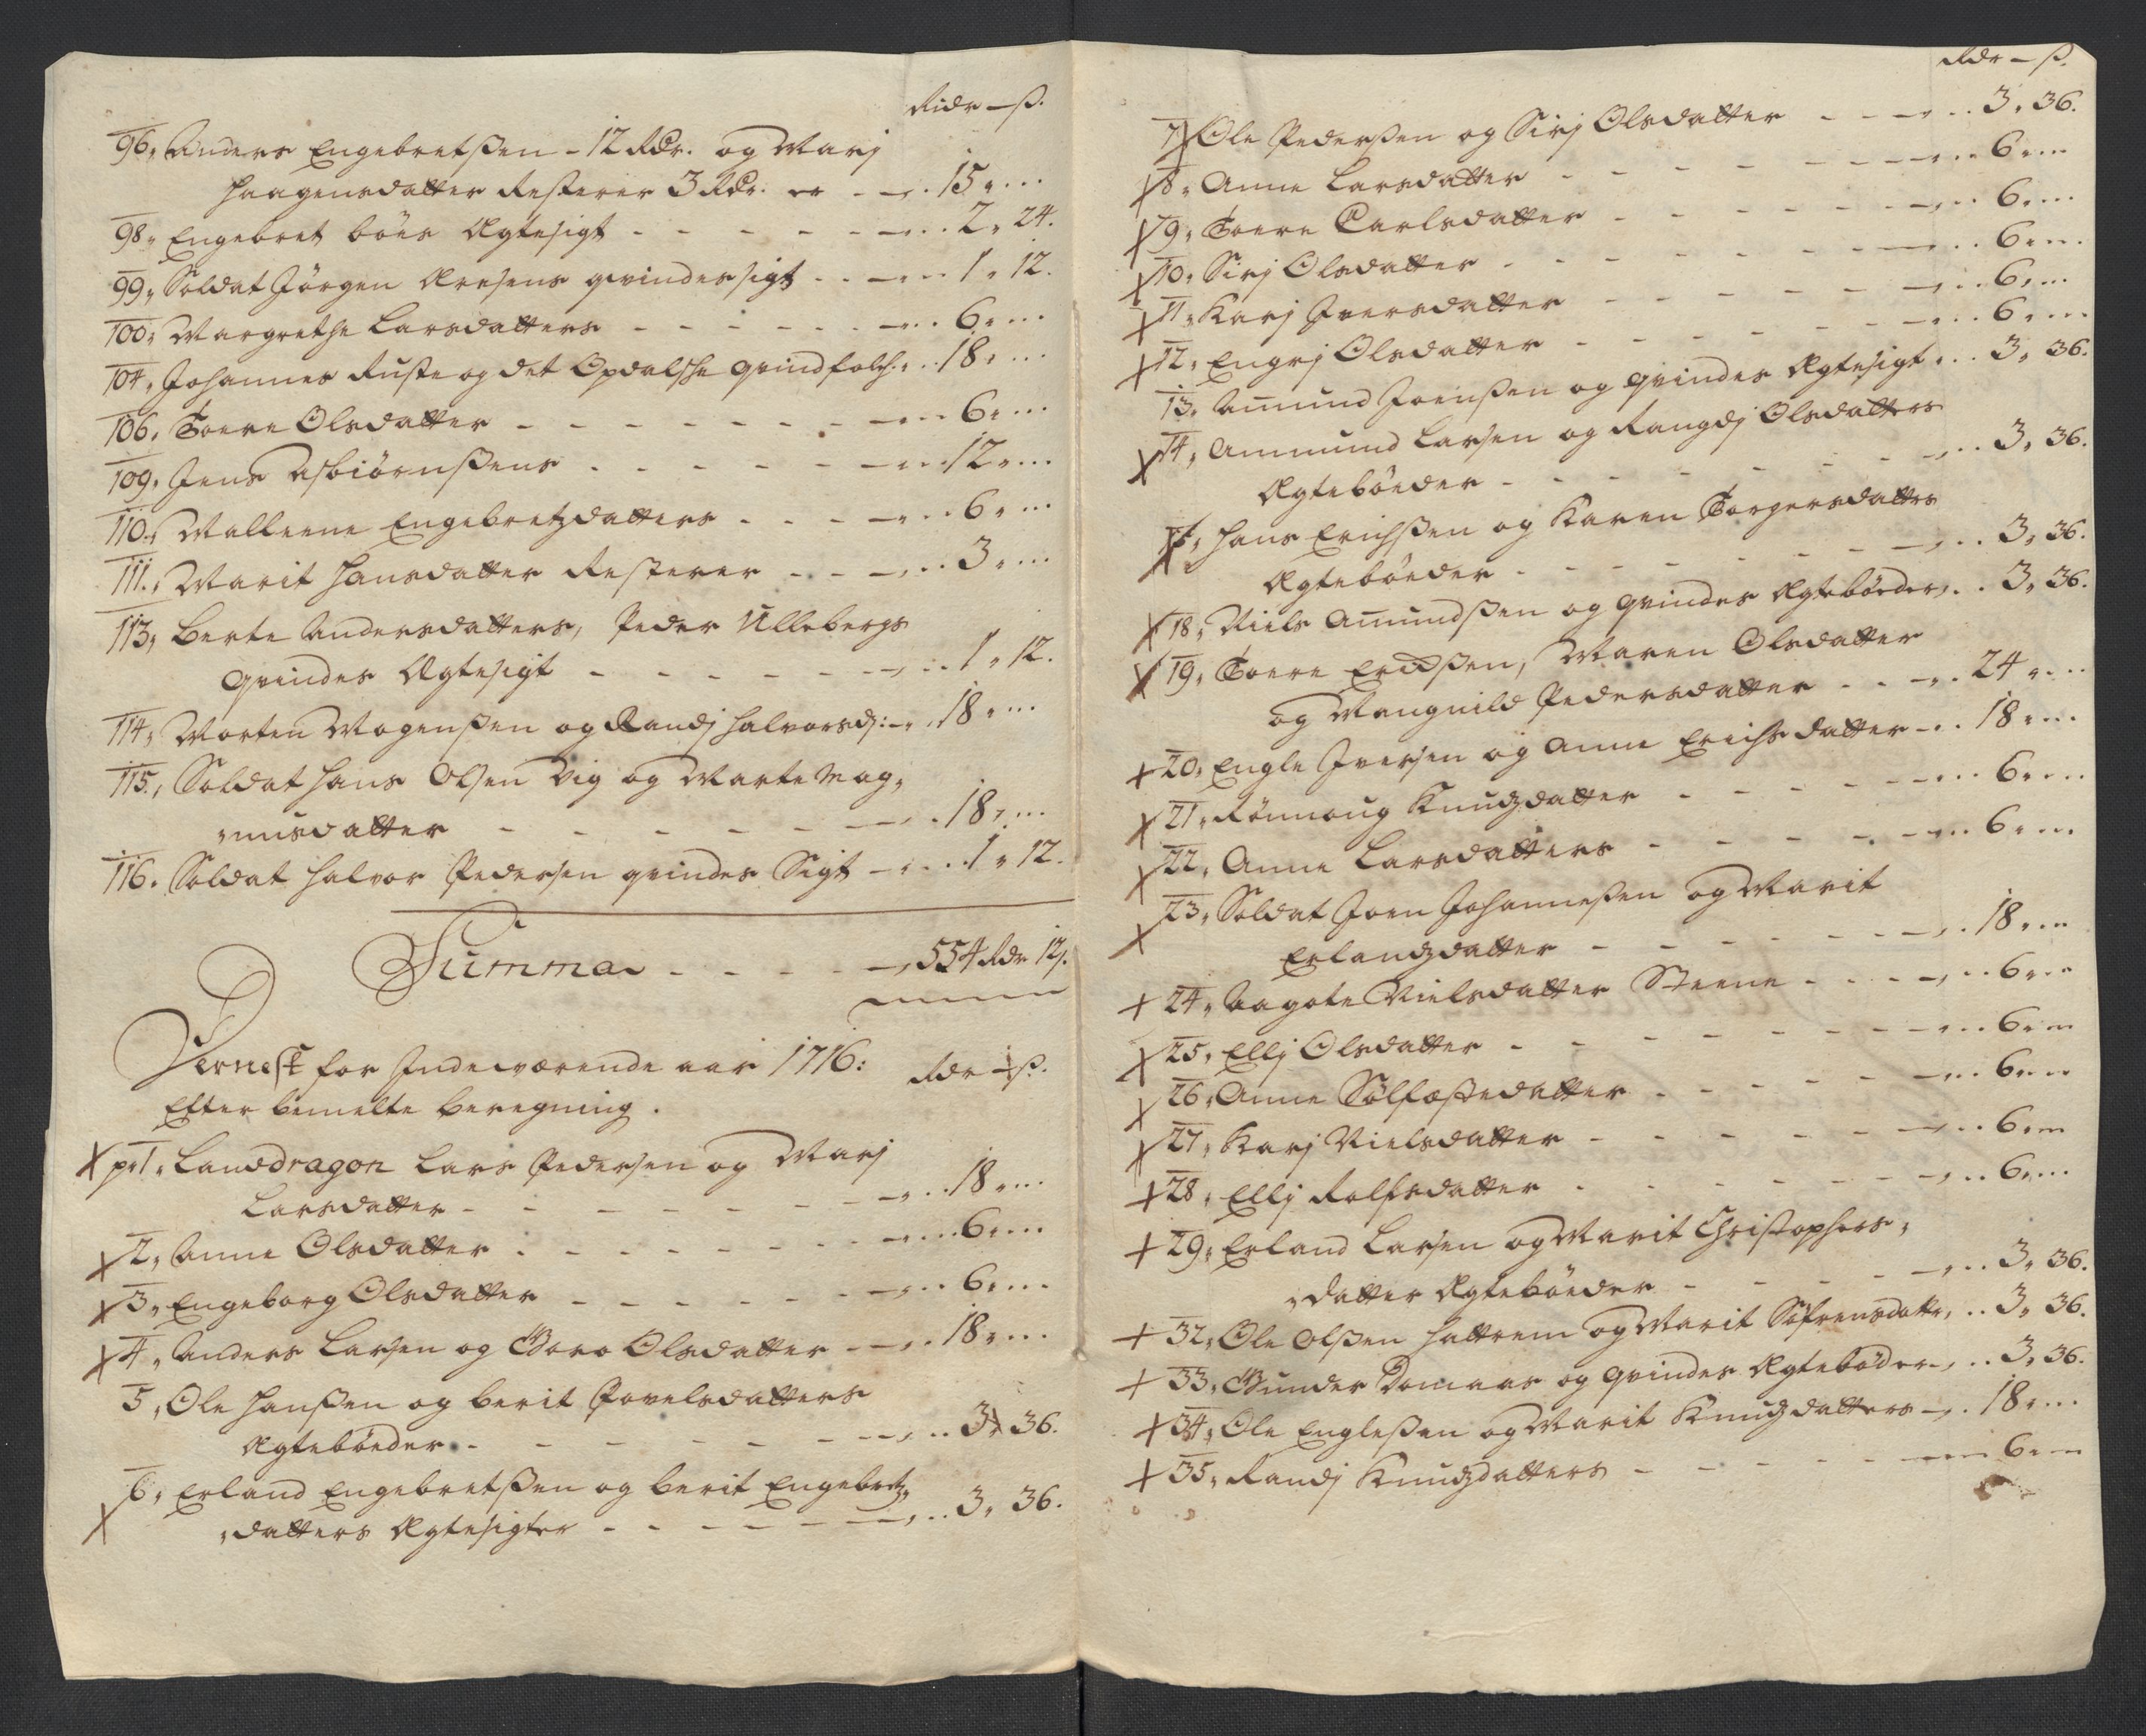 Ridr — ß.
96, Anders Engebretßen - 12 Rdr. og Marj
Haagensdatter Resterer 3 Rdr. er - - 15 „ ...
98„ Engebret böes Ægtesigt - - - - - 2„ 24.
99„ Soldat Jörgen Aresens qvindes sigt - - - 1„ 12.
100, Margrethe Larsdatters - - - - - 6„ ...
104, Johannes Ruste og det Opdalsche qvindfolch. 18„ ...
106, Toere Olsdatter - - - - - - - 6„ ...
109. Jens Asbiörnßens - - - - - - 12„ ...
110„ Malleene Engebretzdatters - - - - 6„ ...
111„ Marit Hansdatter Resterer - - - - 3„ ...
113, Berte Andersdatters, Peder Ullebergs
qvindes Ægtesigt - - - - - - 1„ 12.
114, Morten Mogenßen og Randj Halvorsd: - 18„ ...
115, Soldat Hans Olsen Vig og Marte Mag„
„nusdatter - - - - - - - 18„ ...
116. Soldat Halvor Pedersen qvindes Sigt - - 1„ 12.
Summa - - - - - 554 Rdr 12ß.
Dernest for Indeværende aar 1716: Rdr — ß.
Efter bemelte beregning.
X pr 1„ Landdragon Lars Pedersen og Marj
Larsdatter - - - - - - - 18„ ...
X 2„ Anne Olsdatter - - - - - - - 6„ ...
X 3„ Engeborg Olsdatter - - - - - - 6„ ...
X 4„ Anders Larsen og Goro Olsdatter - - - 18„ ...
5„ Ole Hanßen og Berit Povelsdatters
Ægtebøeder - - - - - - - 3„ 36.
X 6„ Erland Engebretßen og Berit Engebretz„
„datters Ægtesigter - - - - - - 3„ 36.
Rdr — ß.
X 7, Ole Pederßen og Sirj Olsdatter - - - 3„ 36.
X 8„ Anne Larsdatter - - - - - - - 6„ ...
X 9„ Toere Carlsdatter - - - - - - 6„ ...
X 10„ Sirj Olsdatter - - - - - - - 6„ ...
X 11„ Karj Iversdatter - - - - - - 6„ ...
X 12„ Engrj Olsdatter - - - - - - 6„ ...
13„ Amund Joenßen og qvindes Ægtesigt - 3„ 36.
X 14„ Ammund Larsen og Rangdj Olsdatters
Ægtebøeder - - - - - - - 3„ 36.
X Hans Erichßen og Karen Torgersdatters
Ægtebøeder - - - - - - - 3„ 36.
X 18„ Niels Amundßen og qvindes Ægtebøeder, 3„ 36.
X 19„ Toere Erichßen, Maren Olsdatter
og Mangnild Pedersdatter - - - 24„ ...
X 20„ Engle Iversen og Anne Erichsdatter - - 18„ ...
X 21„ Rönnoug Knudzdatter - - - - - 6„ ...
X 22„ Anne Larsdatters - - - - - - 6„ ...
X 23„ Soldat Joen Johannesßen og Marit
Erlandzdatter - - - - - - 18„ ...
X 24„ Aagote Nielsdatter Steene - - - - 6„ ...
X 25„ Ellj Olsdatter - - - - - - - 6„ ...
X 26„ Anne Sölfæstedatter - - - - - 6„ ...
X 27„ Karj Nielsdatter - - - - - - 6„ ...
X 28„ Ellj Rolfsdatter - - - - - - 6„ ...
X 29„ Erland Larsen og Marit Christophers„
„datter Ægtebøeder - - - - - 3„ 36.
X 32„ Ole Olßen Hattrem og Marit Söfrensdattr, 3„ 36.
X 33„ Gunder Domaas og qvindes Ægtebøder - 3„ 36.
X 34„ Ole Engleßen og Marit Knudzdatters - 18„ ...
X 35„ Randj Knudzdatters - - - - - 6„ ...